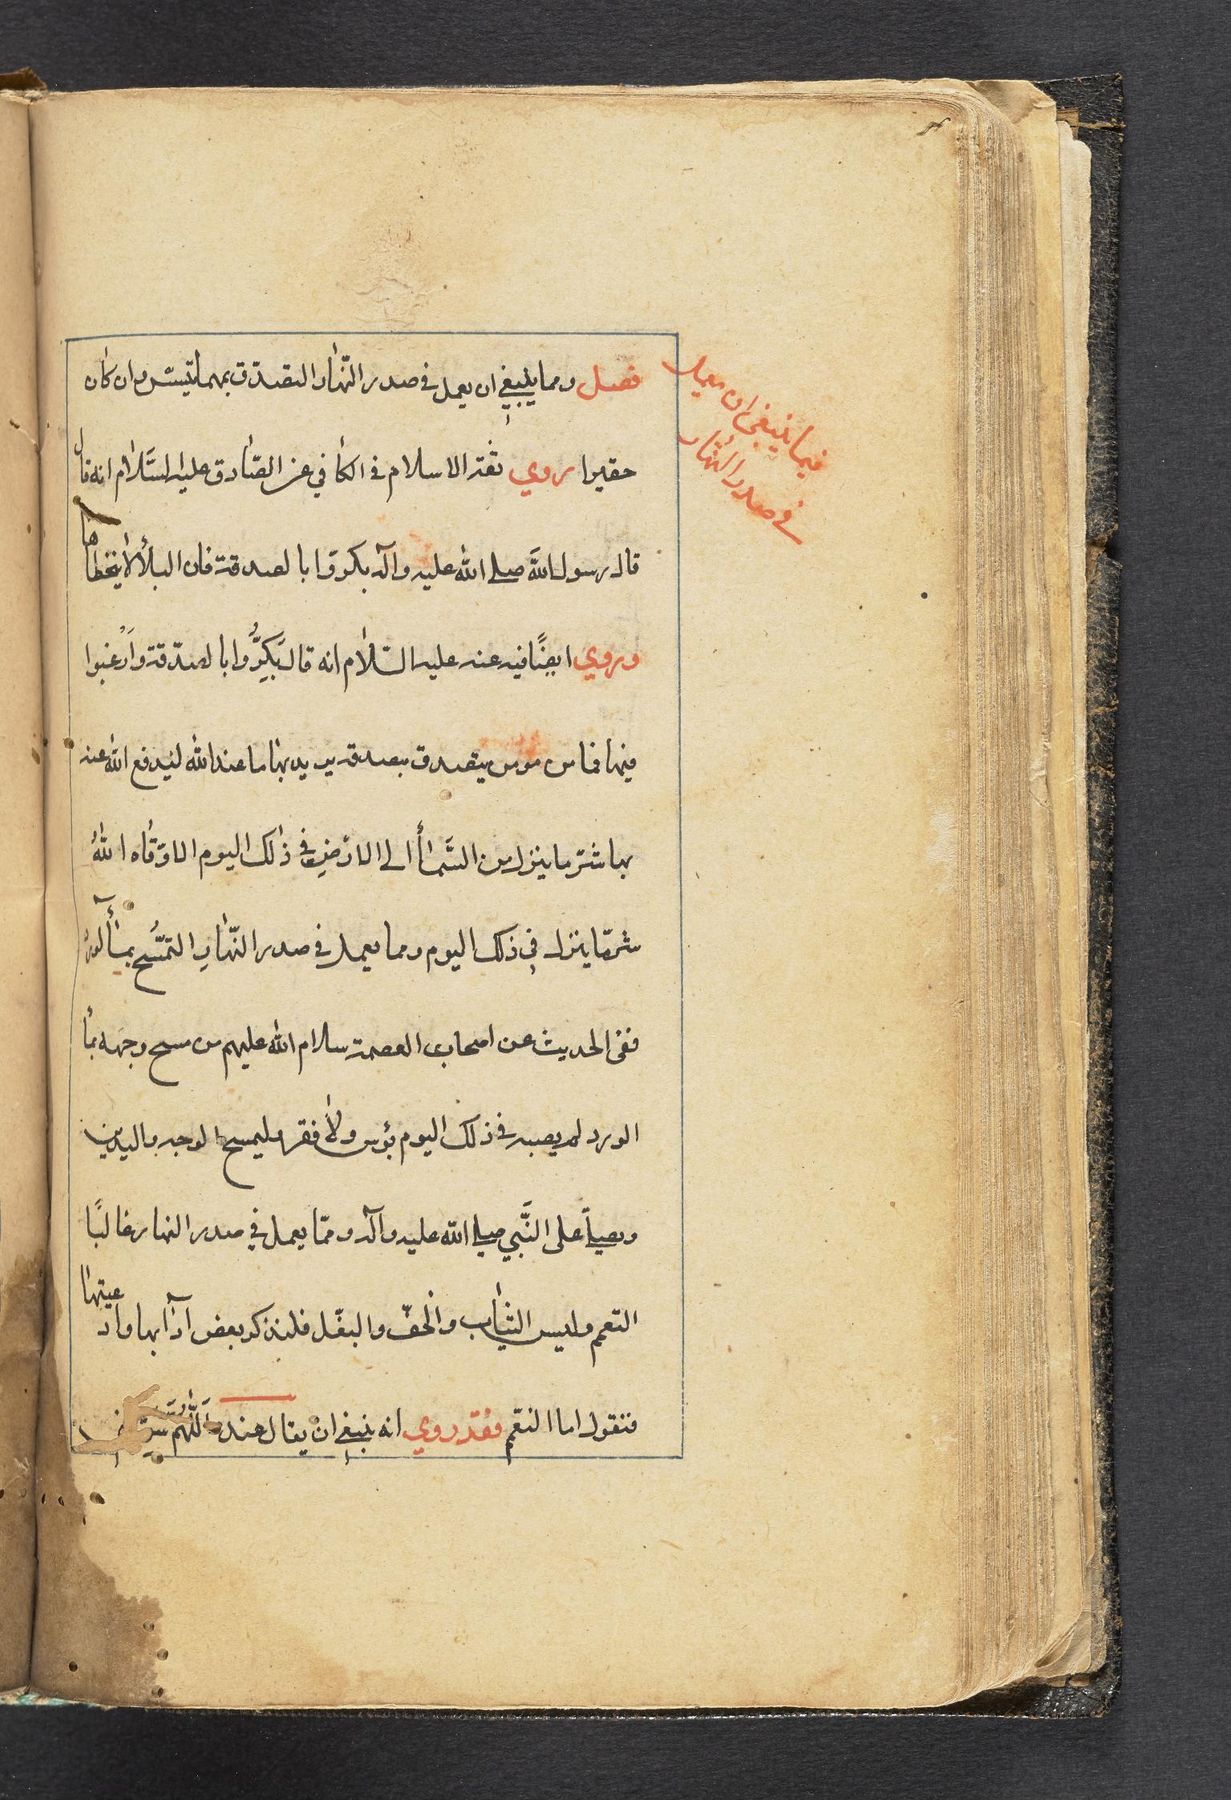 فيما ينبغي ان يعمل
في صدر النهار
فصل ومما ينبغي ان يعمل في صدر النّهار التصدّق بمهما تيسّر وان كان
حقيرا روي ثقة الاسلام في الكافي عن الصّادق عليه السَّلام انه قال
قال رسول اللّه صلى اللّه عليه وآله بكروا بالصدقة فان البلأ لا يتخطاها
وروي ايضًا فيه عنه عليه السّلام انه قال بَكِّرُوا بالصدّقة وَارْغبوا
فيها فما من مومن يتصدق بصدقة يريد بها ما عند اللّه ليدفع اللّه عنه
بها شرّ ما ينزل من السَّمأ الى الارْض في ذلك اليوم الا وَقاه اللّهُ
شر مّا ينزل في ذلك اليوم ومما يعمل في صدر النّهارِ التمسُّح بمآء الورد
ففي الحديث عن اصحاب العصمة سلام اللّه عليهم من مسح وجهه بمأ
الورد لم يصبه في ذلك اليوم بؤس ولا فقر وليمسح الوجه واليدين
ويصلّي على النَّبي صلى اللّه عليه وآله وممّا يعمل في صدر النهار غالبًا
التعمم ولبس الثياب والخفّ والنعْل فلنذكر بعض آدابها وادعيتها
فنقول اما التعمّم فقد روي انه ينبغي ان يقال عنده اَللّهُمّ